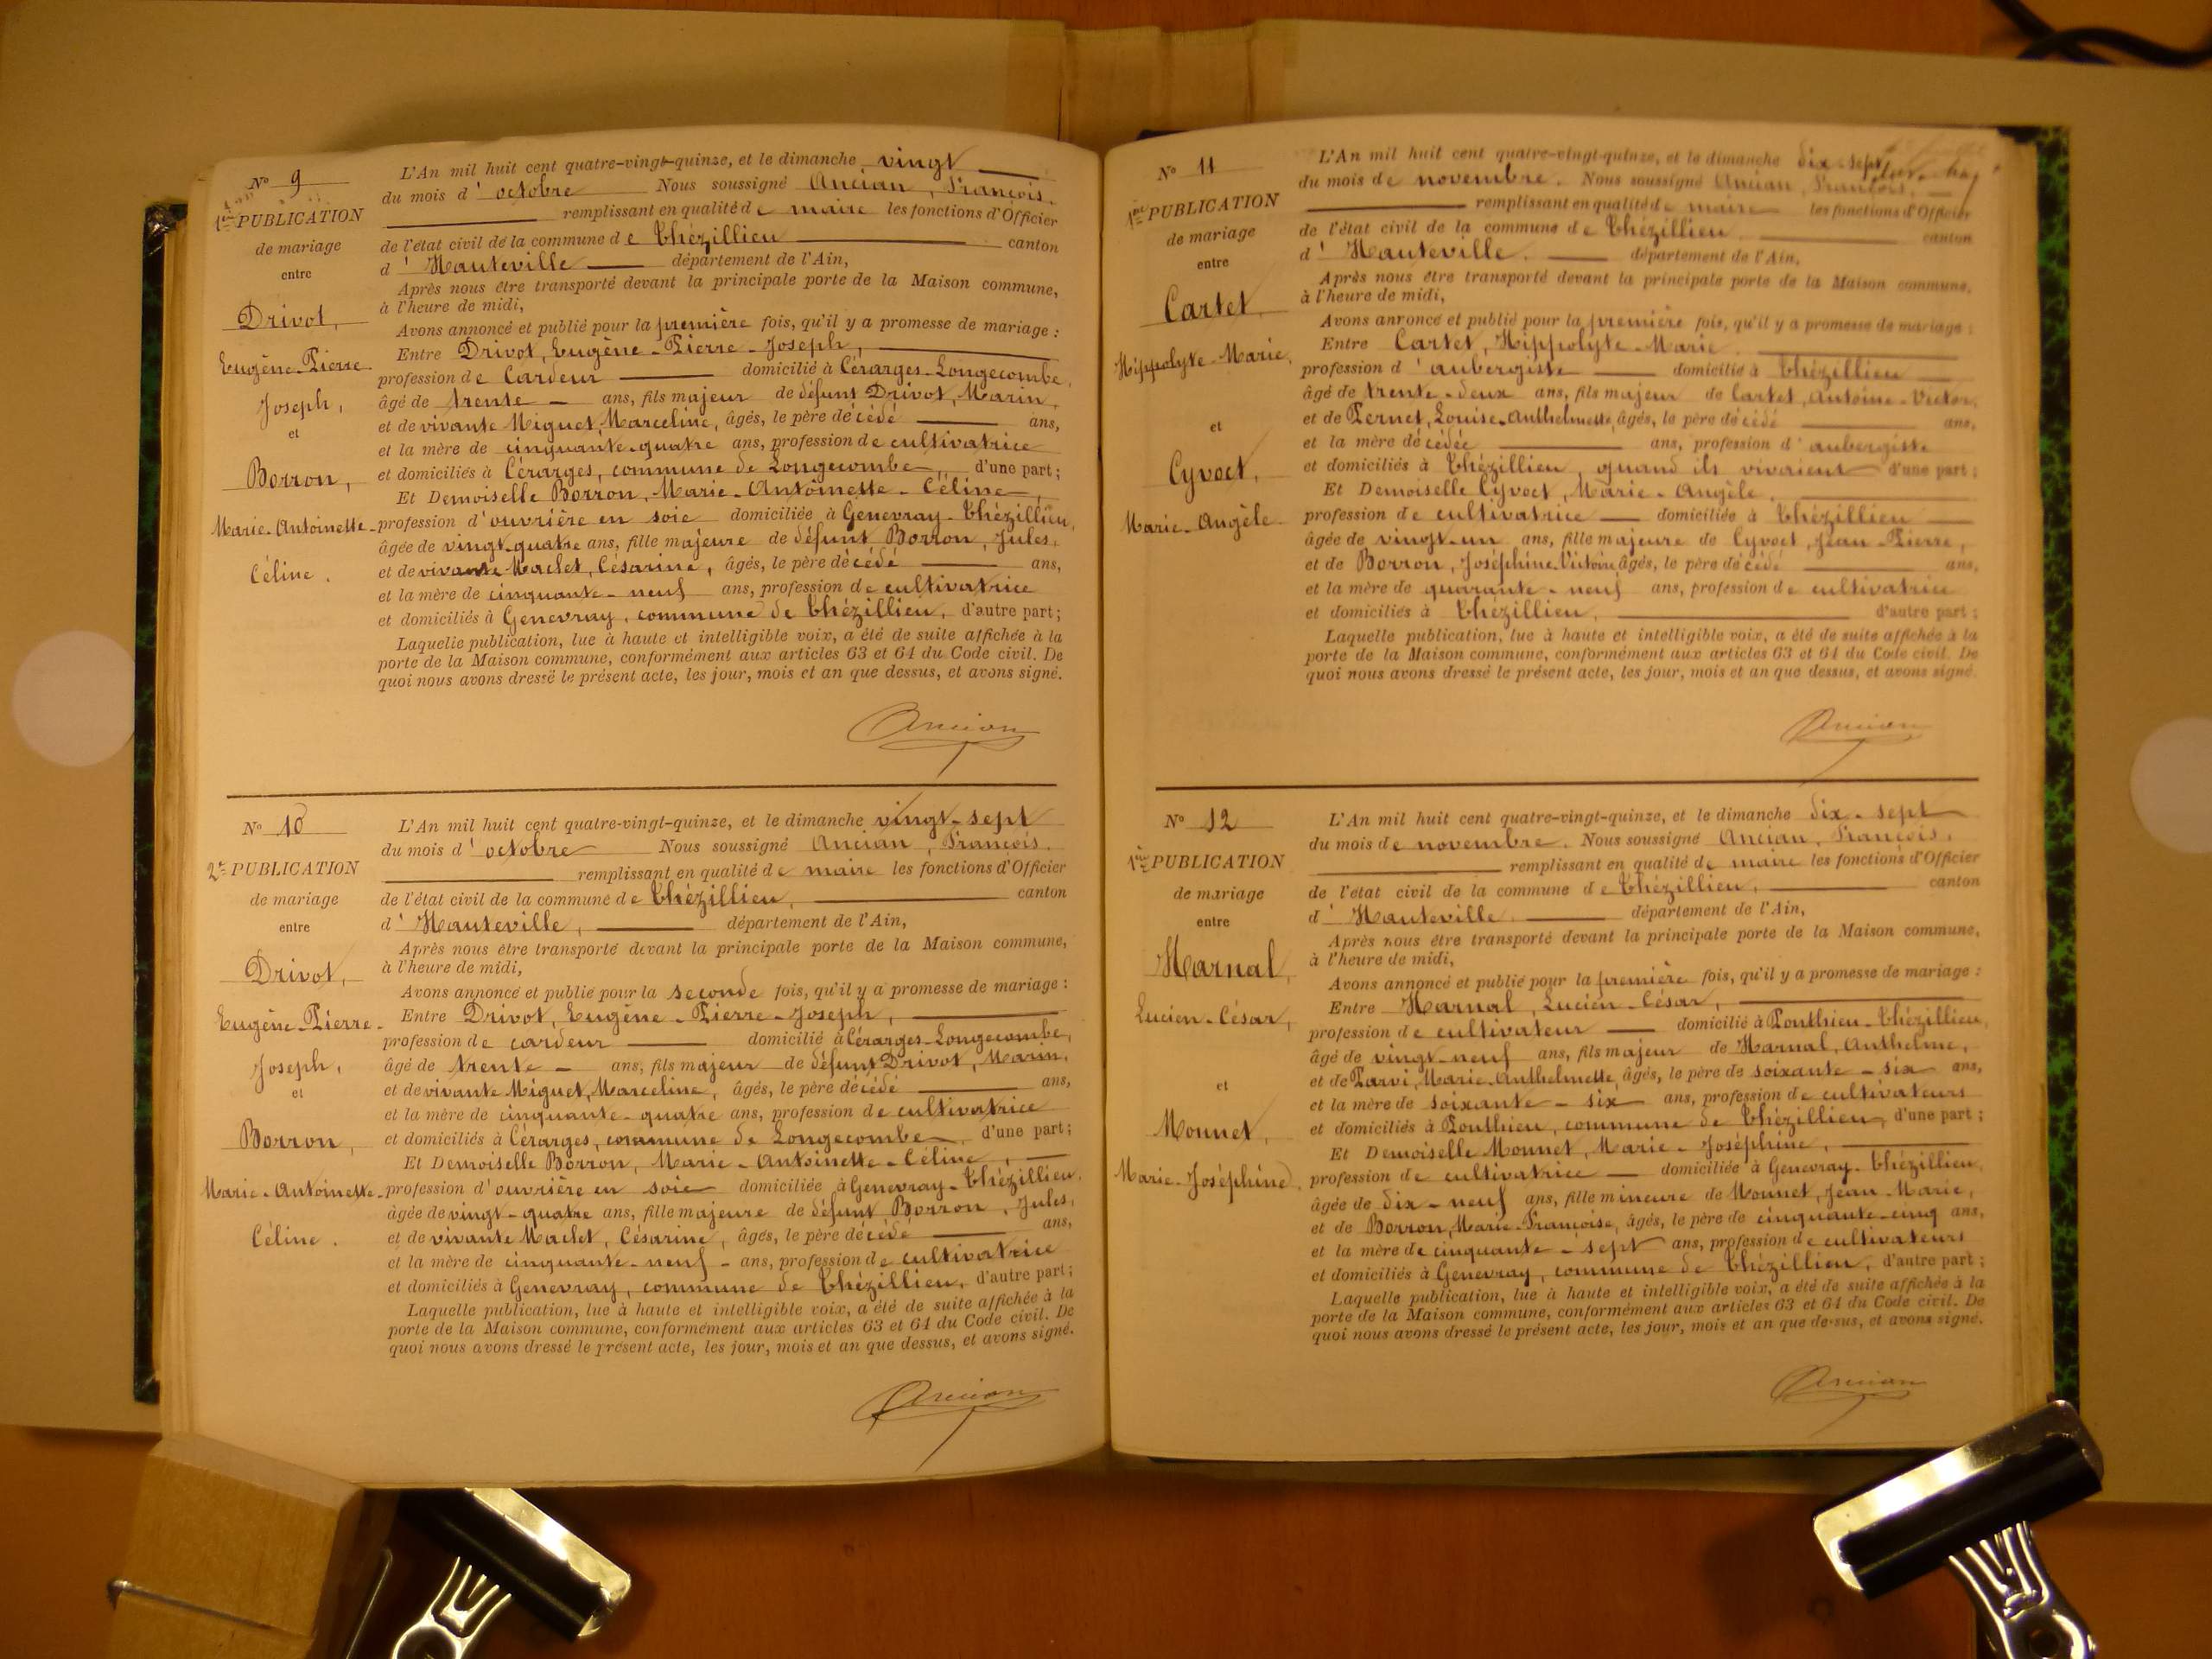 N° 9
1ère PUBLICATION
de mariage
entre
Drivot,
Eugène-Pierre
Joseph,
et
Borron,
Marie-Antoinette-
Céline.
L'An mil huit cent quatre-vingt-quinze, et le dimanche vingt
du mois d'octobre Nous soussigné Ancian, François.
remplissant en qualité de maire les fonctions d'Officier
de l'état civil de la commune de Thézillieu canton
d'Hauteville département de l'Ain,
Après nous être transporté devant la principale porte de la Maison commune,
à l'heure de midi,
Avons annoncé et publié pour la première fois, qu'il y a promesse de mariage :
Entre Drivot, Eugène-Pierre-Joseph,
profession de Cardeur domicilié à Cérarges-Longecombe,
âgé de trente ans, fils majeur de défunt Drivot, Marin,
et de vivante Miguet, Marceline, âgés, le père décédé ans,
et la mère de cinquante-quatre ans, profession de cultivatrice
et domiciliés à Cérarges, commune de Longecombe, d'une part ;
Et Demoiselle Borron, Marie-Antoinette-Céline,
profession d'ouvrière en soie domiciliée à Genevray-Thézillieu,
âgée de vingt-quatre ans, fille majeure de défunt Borron, Jules,
et de vivante Maclet, Césarine, âgés, le père décédé ans,
et la mère de cinquante-neuf ans, profession de cultivatrice
et domiciliés à Genevray, commune de Thézillieu, d'autre part ;
Laquelle publication, lue à haute et intelligible voix, a été de suite affichée à la
porte de la Maison commune, conformément aux articles 63 et 64 du Code civil. De
quoi nous avons dressé le présent acte, les jour, mois et an que dessus, et avons signé.
Ancian
N° 10
2e PUBLICATION
de mariage
entre
Drivot,
Eugène-Pierre-
Joseph,
et
Borron,
Marie-Antoinette-
Céline.
L'An mil huit cent quatre-vingt-quinze, et le dimanche vingt-sept
du mois d'octobre Nous soussigné Ancian, François.
remplissant en qualité de maire les fonctions d'Officier
de l'état civil de la commune de Thézillieu, canton
d'Hauteville, département de l'Ain,
Après nous être transporté devant la principale porte de la Maison commune,
à l'heure de midi,
Avons annoncé et publié pour la seconde fois, qu'il y a promesse de mariage :
Entre Drivot, Eugène-Pierre-Joseph,
profession de cardeur domicilié à Cérarges-Longecombe,
âgé de trente ans, fils majeur de défunt Drivot, Marin,
et de vivante Miguet, Marceline, âgés, le père décédé ans,
et la mère de cinquante-quatre ans, profession de cultivatrice
et domiciliés à Cérarges, commune de Longecombe, d'une part ;
Et Demoiselle Borron, Marie-Antoinette-Céline,
profession d'ouvrière en soie domiciliée à Genevray-Thézillieu,
âgée de vingt-quatre ans, fille majeure de défunt Borron, Jules,
et de vivante Maclet, Césarine, âgés, le père décédé ans,
et la mère de cinquante-neuf - ans, profession de cultivatrice
et domiciliés à Genevray, commune de Thézillieu, d'autre part ;
Laquelle publication, lue à haute et intelligible voix, a été de suite affichée à la
porte de la Maison commune, conformément aux articles 63 et 64 du Code civil. De
quoi nous avons dressé le présent acte, les jour, mois et an que dessus, et avons signé.
Ancian
N° 11
1ère PUBLICATION
de mariage
entre
Cartet,
Hippolyte-Marie,
et
Cyvoct,
Marie-Angèle
L'An mil huit cent quatre-vingt-quinze, et le dimanche dix-sept
du mois de novembre. Nous soussigné Ancian, François.
remplissant en qualité de maire les fonctions d'Officier
de l'état civil de la commune de Thézillieu canton
d'Hauteville. département de l'Ain,
Après nous être transporté devant la principale porte de la Maison commune,
à l'heure de midi,
Avons annoncé et publié pour la première fois, qu'il y a promesse de mariage :
Entre Cartet, Hippolyte-Marie.
profession d'aubergiste domicilié à Thézillieu
âgé de trente-deux ans, fils majeur de Cartet, Antoine-Victor,
et de Pernet, Louise-Anthelmette, âgés, le père décédé ans,
et la mère décédée ans, profession d'aubergiste
et domiciliés à Thézillieu, quand ils vivaient d'une part ;
Et Demoiselle Cyvoct, Marie-Angèle.
profession de cultivatrice domiciliée à Thézillieu
âgée de vingt-un ans, fille majeure de Cyvoct, Jean-Pierre,
et de Borron, Joséphine-Victoire âgés, le père décédé ans,
et la mère de quarante-neuf ans, profession de cultivatrice
et domiciliés à Thézillieu, d'autre part ;
Laquelle publication, lue à haute et intelligible voix, a été de suite affichée à la
porte de la Maison commune, conformément aux articles 63 et 64 du Code civil. De
quoi nous avons dressé le présent acte, les jour, mois et an que dessus, et avons signé.
Ancian
N° 12
1ère PUBLICATION
de mariage
entre
Marnal,
Lucien-César,
et
Monnet,
Marie-Joséphine,
L'An mil huit cent quatre-vingt-quinze, et le dimanche dix-sept
du mois de novembre. Nous soussigné Ancian, François.
remplissant en qualité de maire les fonctions d'Officier
de l'état civil de la commune de Thézillieu, canton
d'Hauteville. département de l'Ain,
Après nous être transporté devant la principale porte de la Maison commune,
à l'heure de midi,
Avons annoncé et publié pour la première fois, qu'il y a promesse de mariage :
Entre Marnal, Lucien-César,
profession de cultivateur domicilié à Ponthieu-Thézillieu,
âgé de vingt-neuf ans, fils majeur de Marnal, Anthelme,
et de Parvi, Marie-Anthelmette, âgés, le père de soixante-six ans,
et la mère de soixante-six ans, profession de cultivateurs
et domiciliés à Ponthieu, commune de Thézillieu, d'une part ;
Et Demoiselle Monnet, Marie-Joséphine,
profession de cultivatrice domiciliée à Genevray-Thézillieu,
âgée de dix-neuf ans, fille mineure de Monnet, Jean-Marie,
et de Borron, Marie-Françoise, âgés, le père de cinquante-cinq ans,
et la mère de cinquante-sept ans, profession de cultivateurs
et domiciliés à Genevray, commune de Thézillieu, d'autre part ;
Laquelle publication, lue à haute et intelligible voix, a été de suite affichée à la
porte de la Maison commune, conformément aux articles 63 et 64 du Code civil. De
quoi nous avons dressé le présent acte, les jour, mois et an que dessus, et avons signé.
Ancian